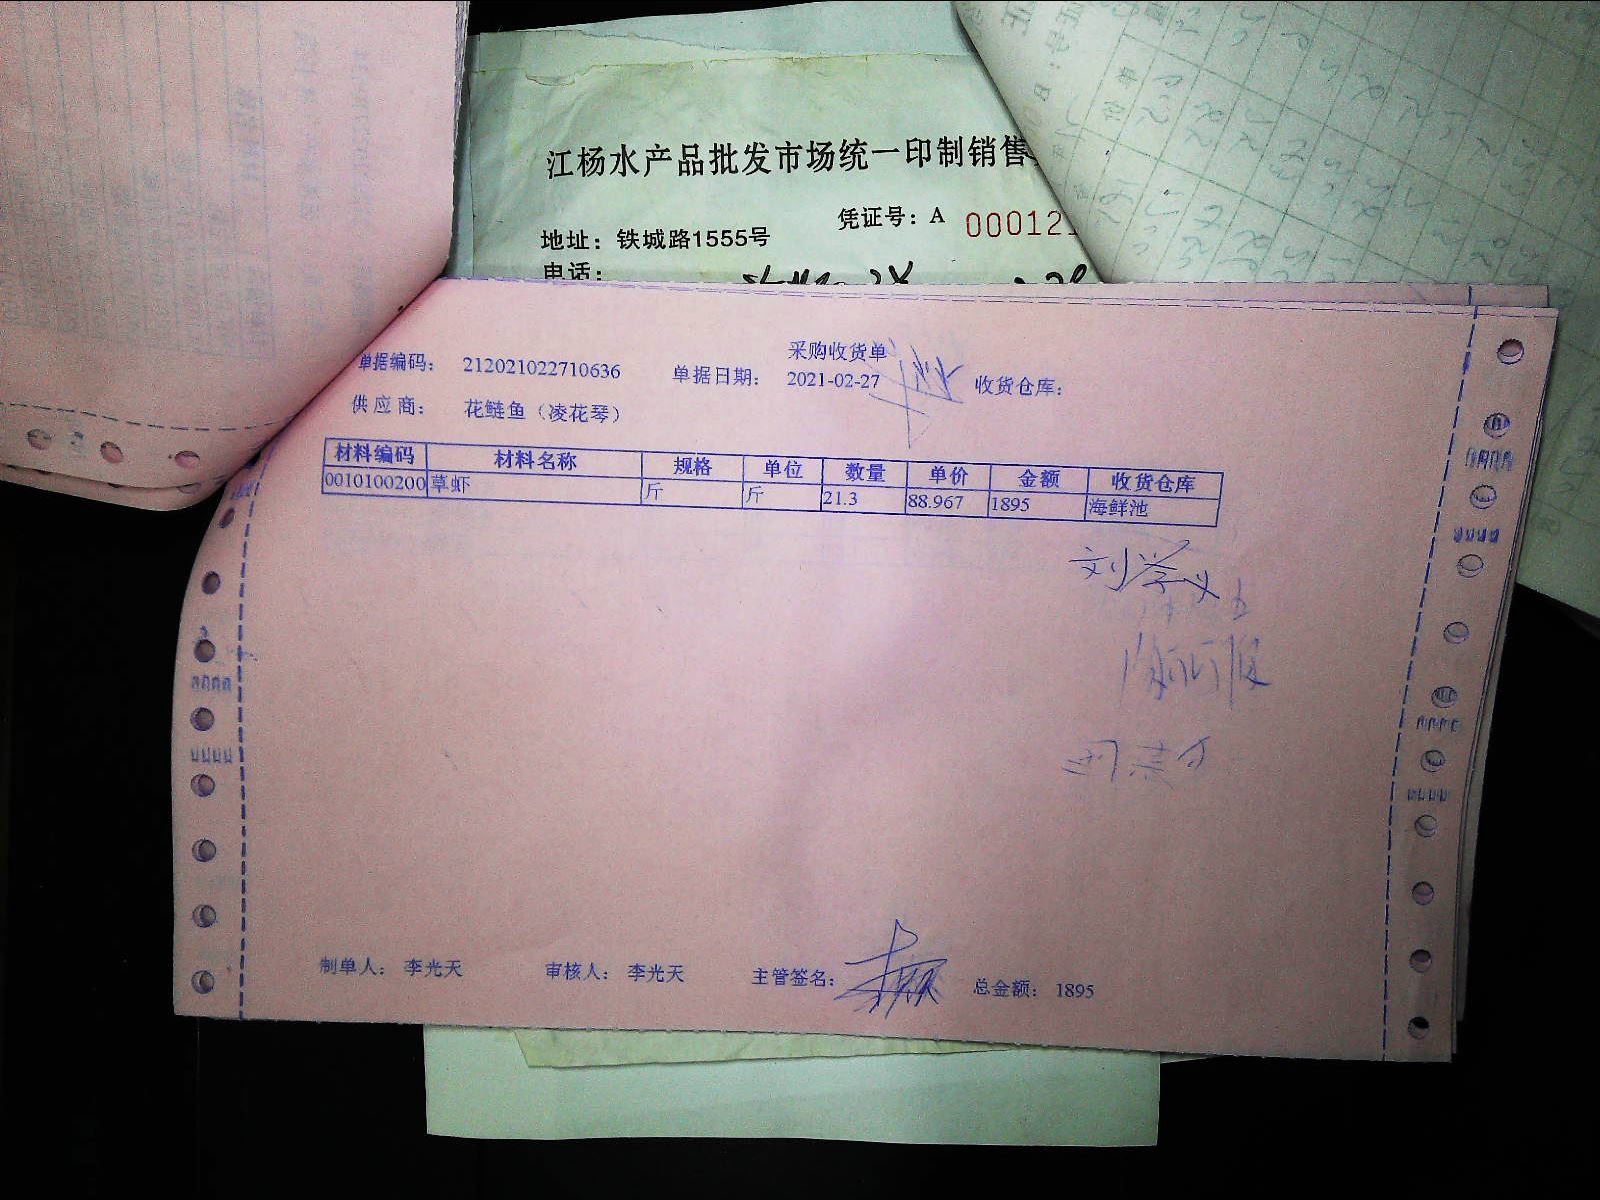 江杨水产品批发市场统一印制销售
凭证号：A 00012
地址：铁城路1555号
电话：
采购收货单
单据编码： 212021022710636 单据日期： 2021-02-27 收货仓库：
供应商： 花鲢鱼（凌花琴）
材料编码 材料名称 规格 单位 数量 单价 金额 收货仓库
0010100200 草虾 斤 斤 21.3 88.967 1895 海鲜池
刘学义
制单人： 李光天 审核人： 李光天 主管签名： 总金额： 1895